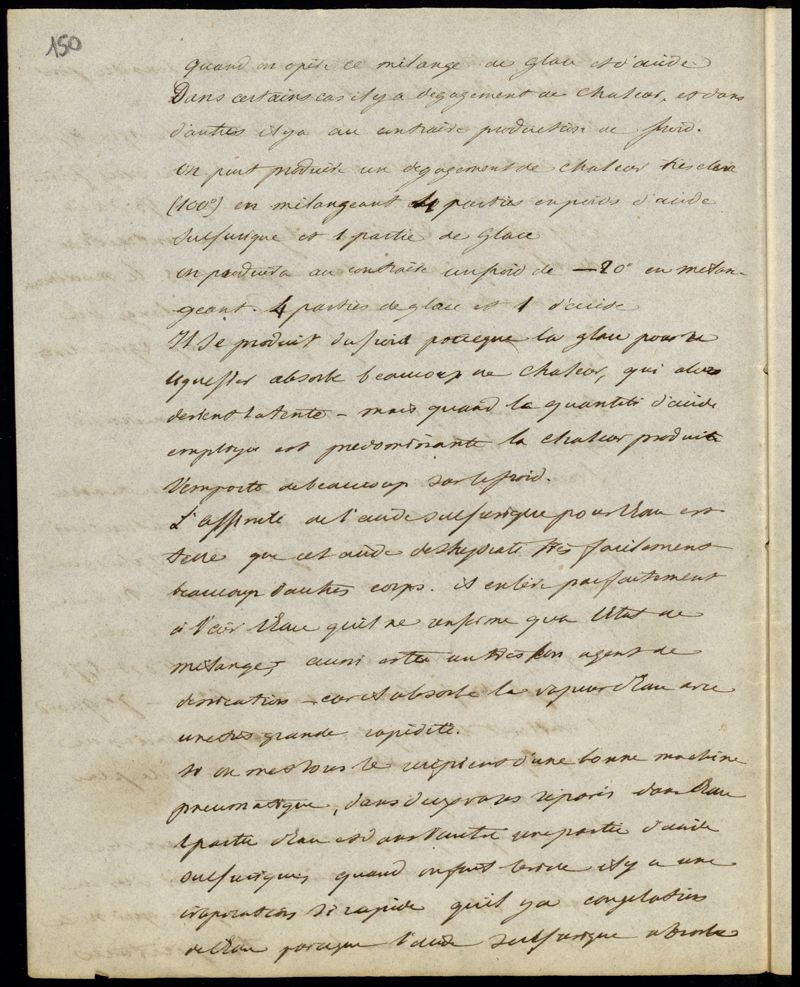 150
quand on opère ce mélange de glace et d'acide
Dans certains cas il y a dégagement de chaleur, et dans
d'autres il y a au contraire production de froid.
on peut produire un dégagement de chaleur très élevé
(100°) en mélangeant 4 parties en poids d'acide
sulfurique et 1 partie de glace
on produira au contraire un froid de -20° en mélan-
geant 4 parties de glace et 1 d'acide
Il se produit du froid parceque la glace pour se
liquéfier absorbe beaucoup de chaleur, qui alors
devient latente - mais quand la quantité d'acide
employé est prédominante la chaleur produite
l'emporte de beaucoup sur le froid.
L'affinité de l'acide sulfurique pour l'Eau est
telle que cet acide deshydrate très facilement
beaucoup d'autres corps. il enlève parfaitement
à l'air l'Eau qu'il ne renferme qu'a l'état de
mélange, aussi est ce un très bon agent de
dessication - car il absorbe la vapeur d'Eau avec
une très grande rapidité.
si on met sous le récipient d'une bonne machine
pneumatique, dans deux vases séparés dans l'un
1 partie d'Eau et dans l'autre une partie d'acide
sulfurique, quand on fait le vide il y a une
évaporation si rapide qu'il y a congélation
de l'Eau parceque l'acide sulfurique absorbe